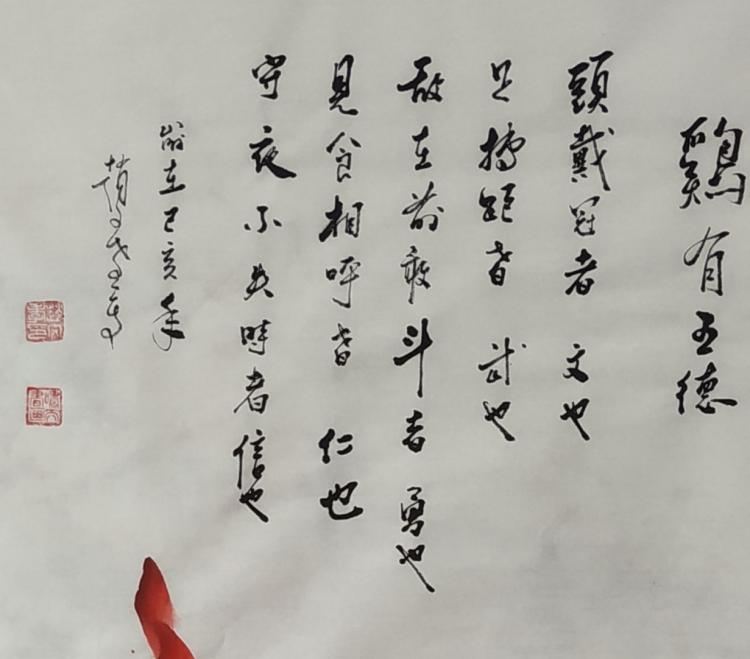 鷄有五德
頭戴冠者 文也
足搏距者 武也
敌在前敢斗者 勇也
見食相呼者 仁也
守夜不失時者信也
歲在己亥年
趙